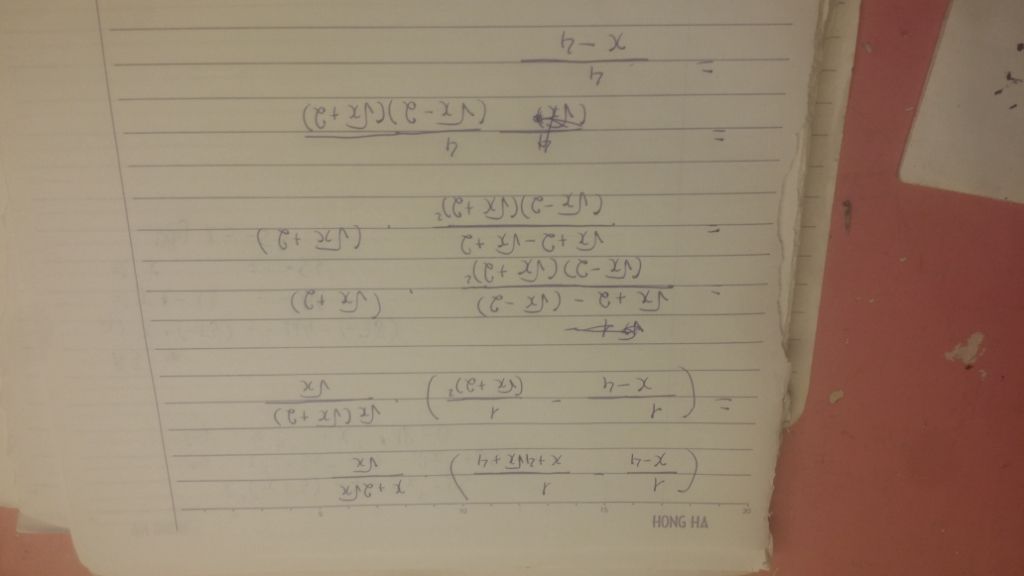 HONG HA
20 15 10 5
( 1/(x-4) - 1/(x+4√x+4) ) · (x+2√x)/√x
= ( 1/(x-4) - 1/(√x+2)² ) · √x(√x+2)/√x
= (√x+2 - (√x-2))/((√x-2)(√x+2)²) · (√x+2)
= (√x+2-√x+2)/((√x-2)(√x+2)²) · (√x+2)
= 4/((√x-2)(√x+2))
= 4/(x-4)